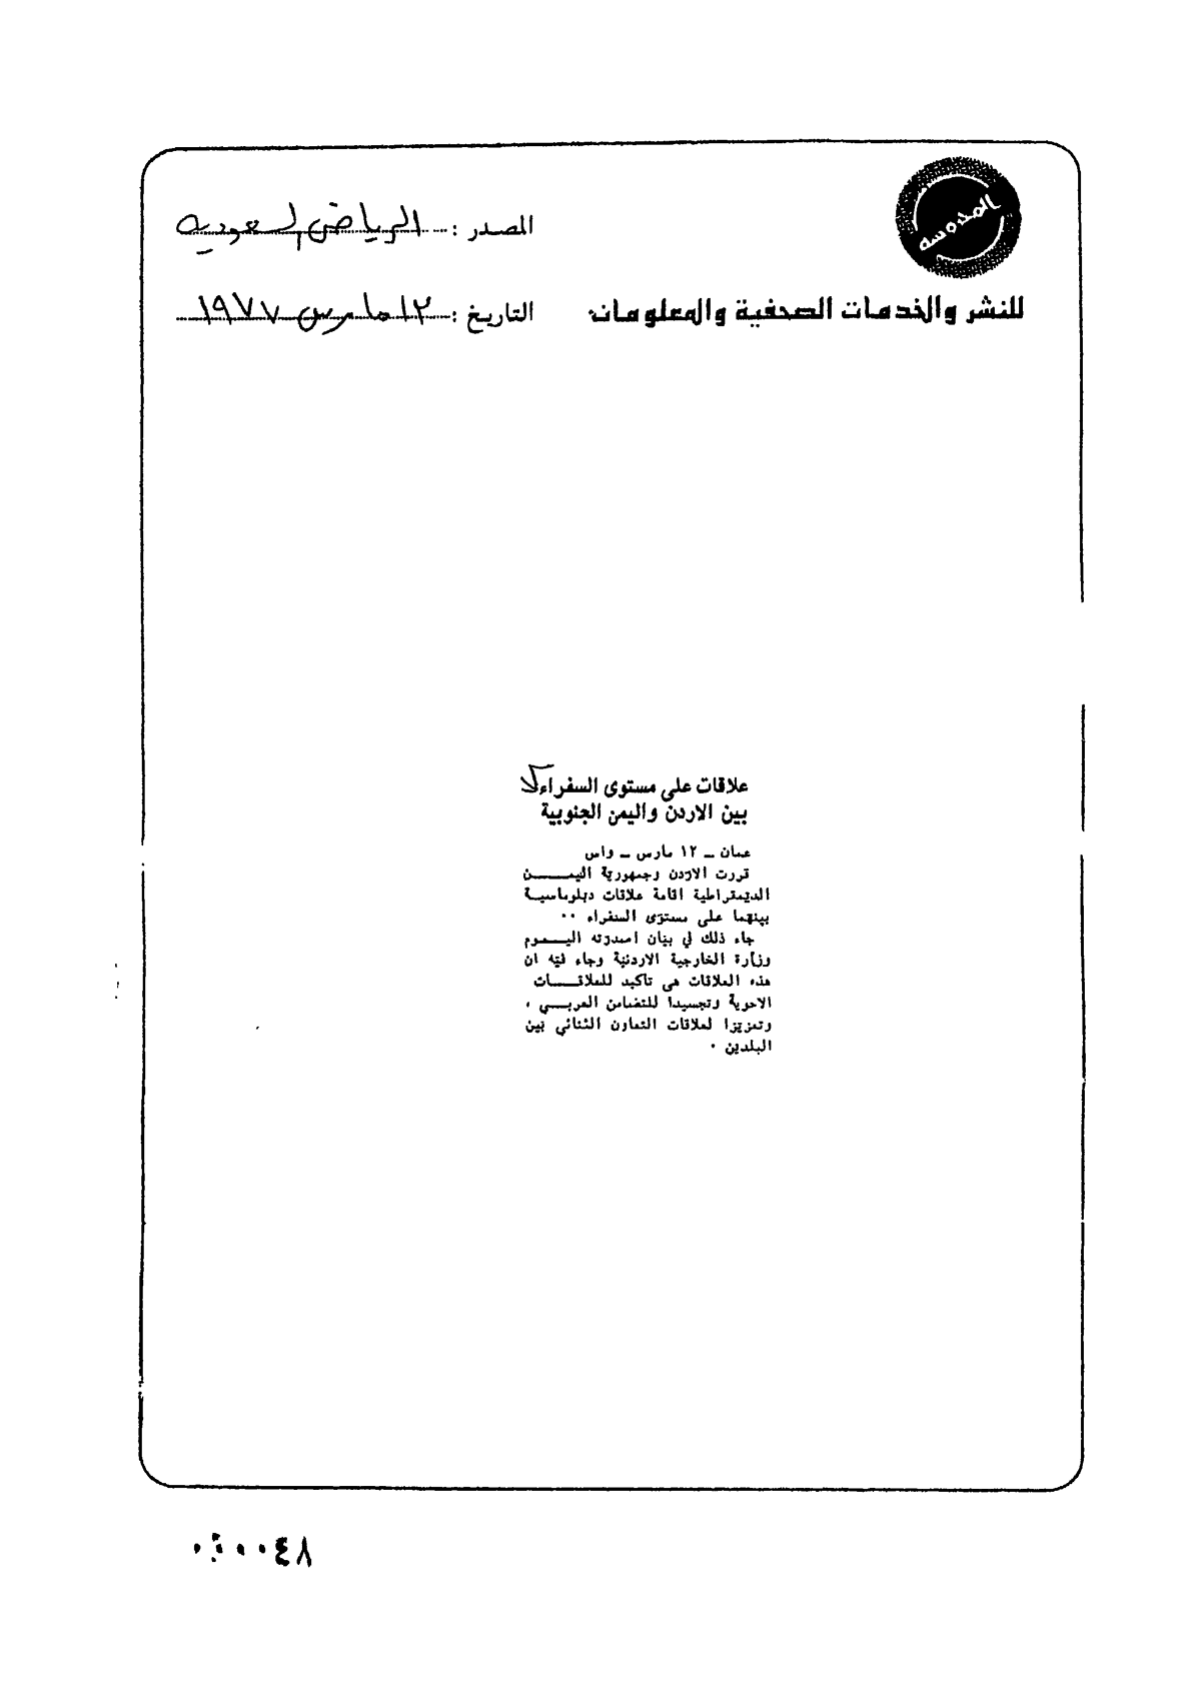 المحروسة
المصدر : الرياض السعودية
للنشر والخدمات الصحفية والمعلومات
التاريخ : ١٢ مارس ١٩٧٧
علاقات على مستوى السفراء
بين الاردن واليمن الجنوبية
عمان ــ ١٢ مارس ــ واس
قررت الاردن وجمهورية اليمــــن
الديمقراطية اقامة علاقات دبلوماسيـة
بينهما على مستوى السفراء ٠٠
جاء ذلك في بيان اصدرته اليــوم
وزارة الخارجية الاردنية وجاء فيه ان
هذه العلاقات هي تاكيد للعلاقـــات
الاخوية وتجسيدا للتضامن العربــي ،
وتعزيزا لعلاقات التعاون الثنائي بين
البلدين ٠